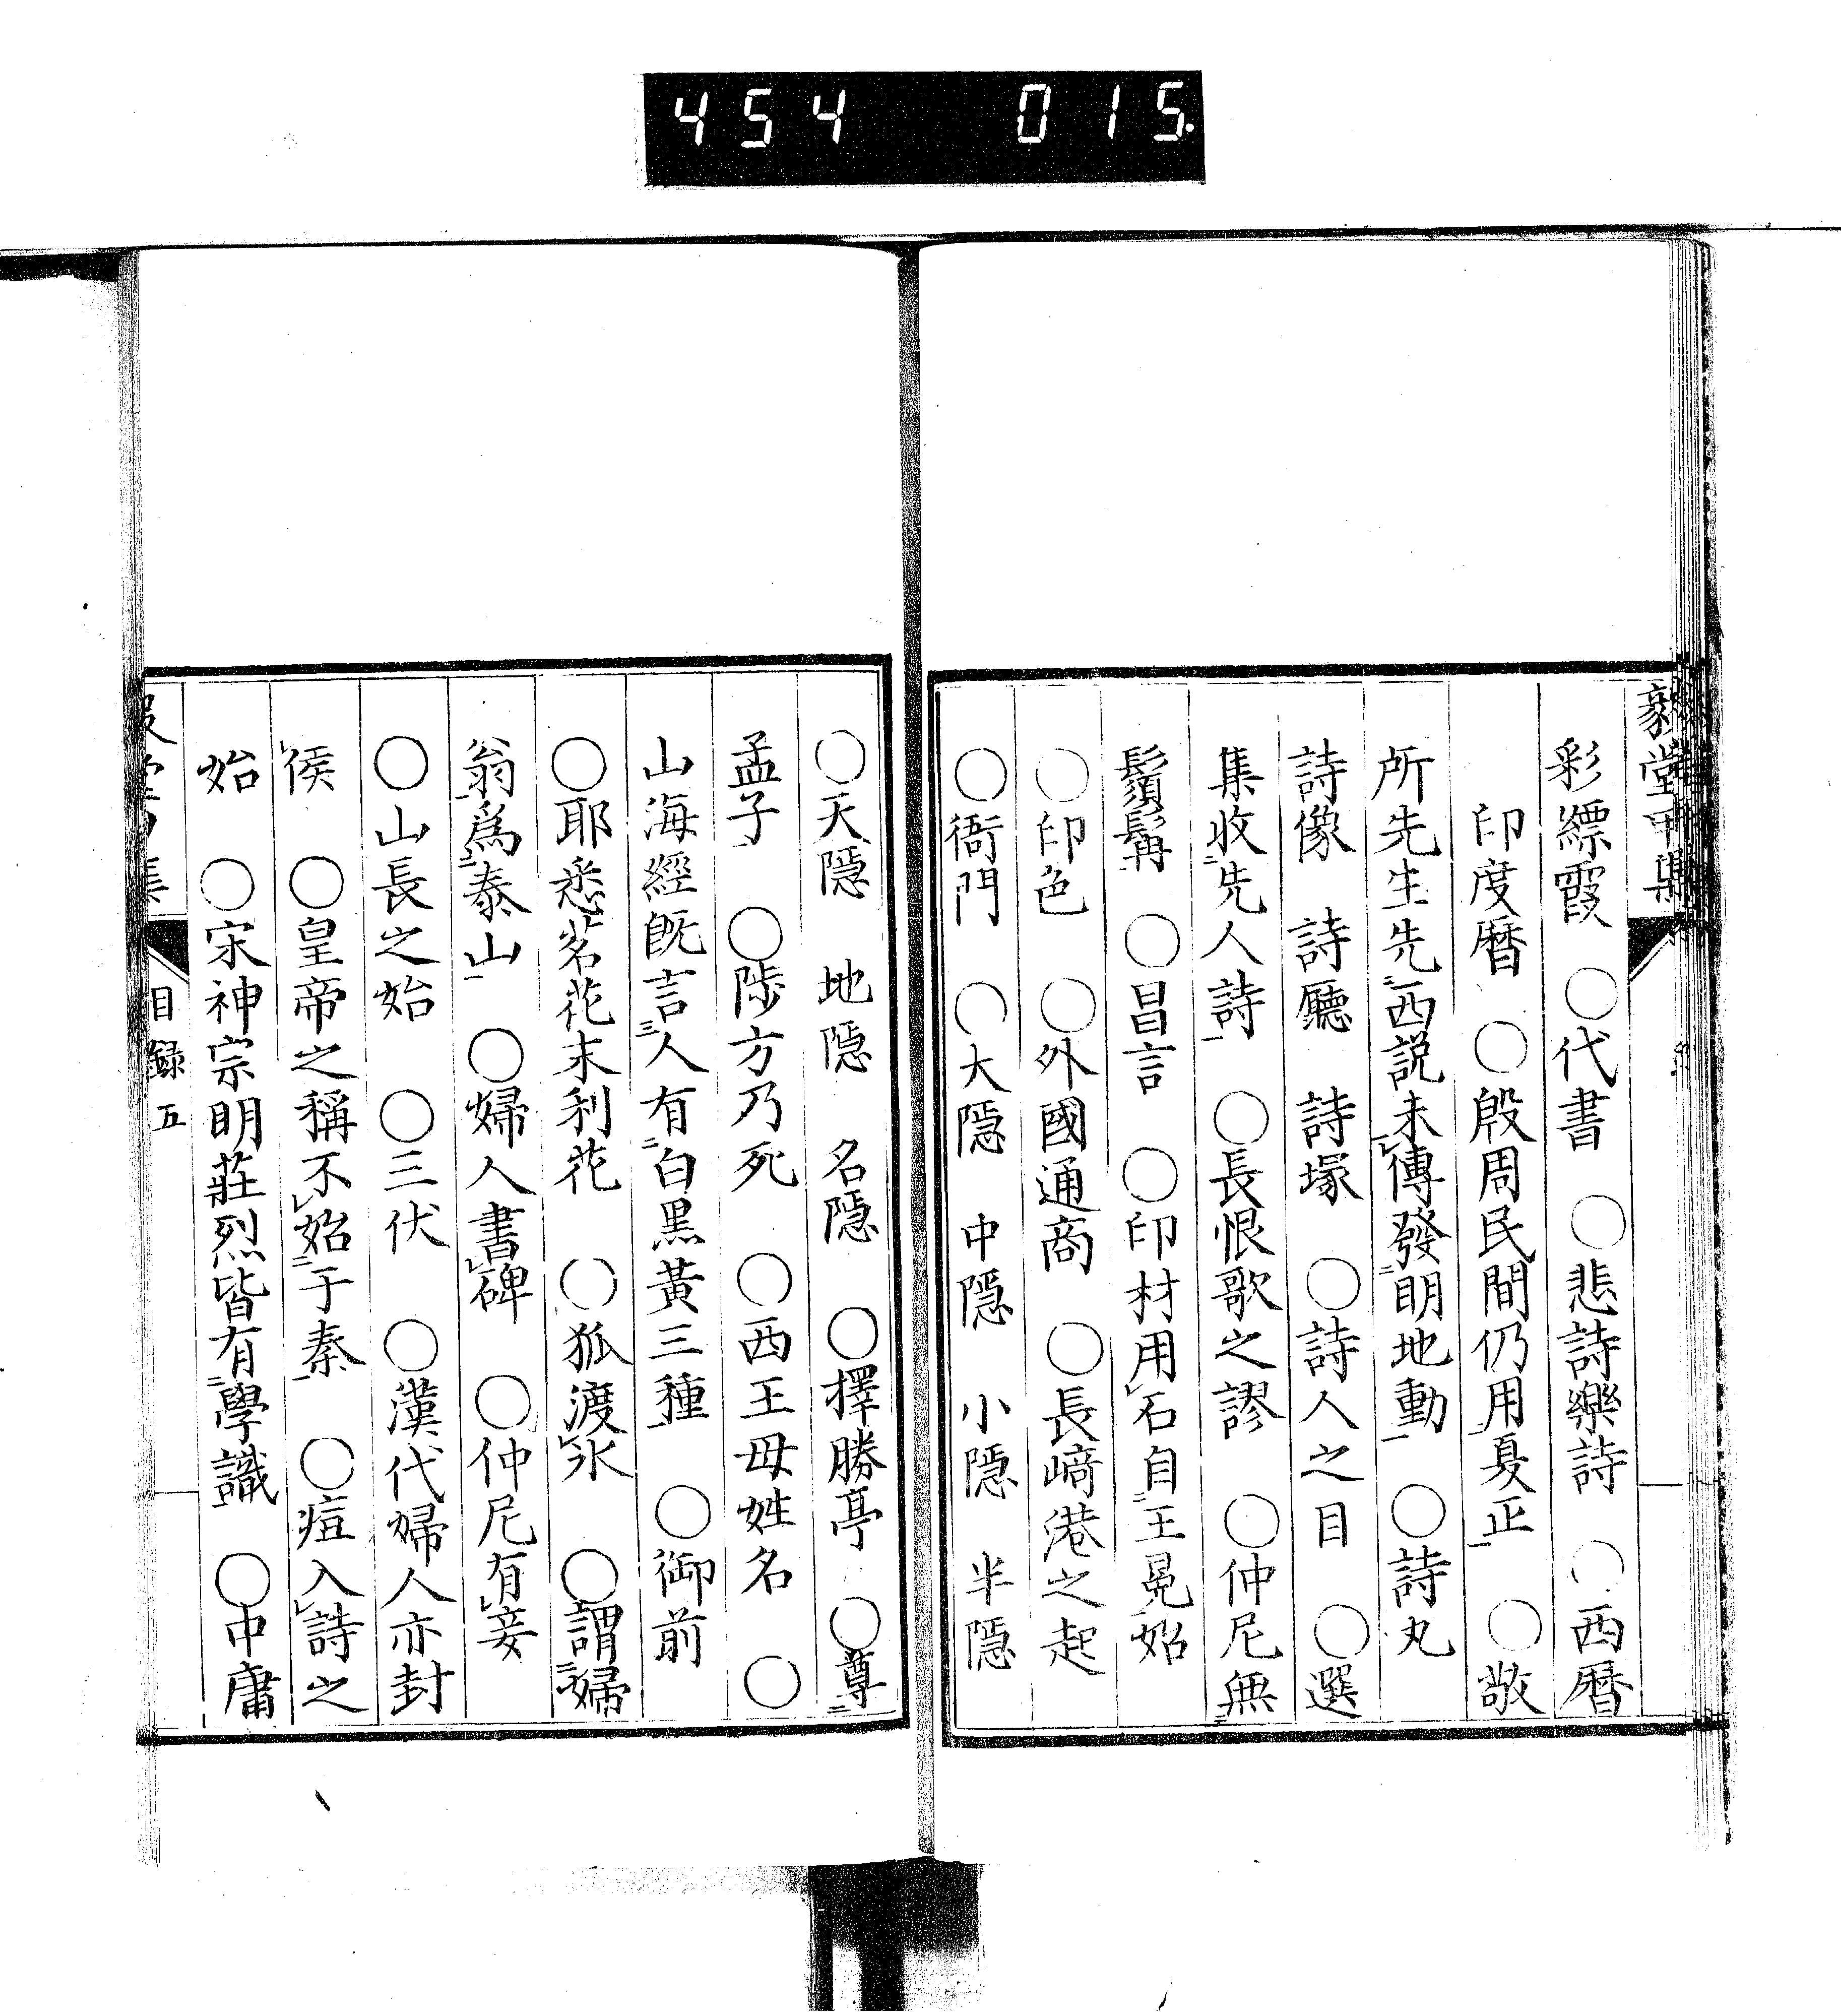 454 015.
毅堂丁集
彩縹霞　○代書　○悲詩樂詩　○西曆
印度曆　○殷周民間仍用夏正　○敬
所先生先西説未傳發明地動　○詩丸
詩像　詩廳　詩塚　○詩人之目　○選
集收先人詩　○長恨歌之謬　○仲尼無
鬚髯　○昌言　○印材用石自王冕始
○印色　○外國通商　○長﨑港之起
○衙門　○大隱　中隱　小隱　半隱
○天隱　地隱　名隱　○擇勝亭　○尊
孟子　○陟方乃死　○西王母姓名　○
山海經既言人有白黒黃三種　○御前
○耶悉茗花末利花　○狐渡氷　○謂婦
翁爲泰山　○婦人書碑　○仲尼有妾
○山長之始　○三伏　○漢代婦人亦封
侯　○皇帝之稱不始于秦　○痘入詩之
始　○宋神宗明莊烈皆有學識　○中庸
目録 五